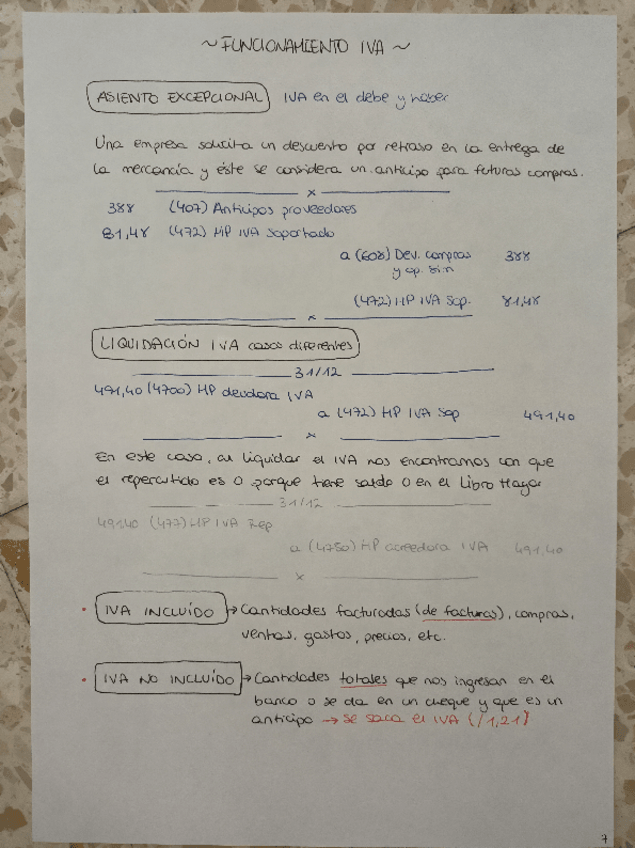 ~ FUNCIONAMIENTO IVA ~
ASIENTO EXCEPCIONAL IVA en el debe y haber
Una empresa solicita un descuento por retraso en la entrega de
la mercancía y éste se considera un anticipo para futuras compras.
x
388 (407) Anticipos proveedores
81,48 (472) HP IVA Soportado
a (608) Dev. compras 388
y op. sin
(472) HP IVA Sop. 81,48
x
LIQUIDACIÓN IVA casos diferentes
31/12
491,40 (4700) HP deudora IVA
a (472) HP IVA Sop 491,40
x
En este caso, al liquidar el IVA nos encontramos con que
el repercutido es 0 porque tiene saldo 0 en el Libro Mayor
31/12
491,40 (477) HP IVA Rep
a (4750) HP acreedora IVA 491,40
x
• IVA INCLUÍDO → Cantidades facturadas (de facturas), compras,
ventas, gastos, precios, etc.
• IVA NO INCLUÍDO → Cantidades totales que nos ingresan en el
banco o se da en un cheque y que es un
anticipo → se saca el IVA (/1,21)
7